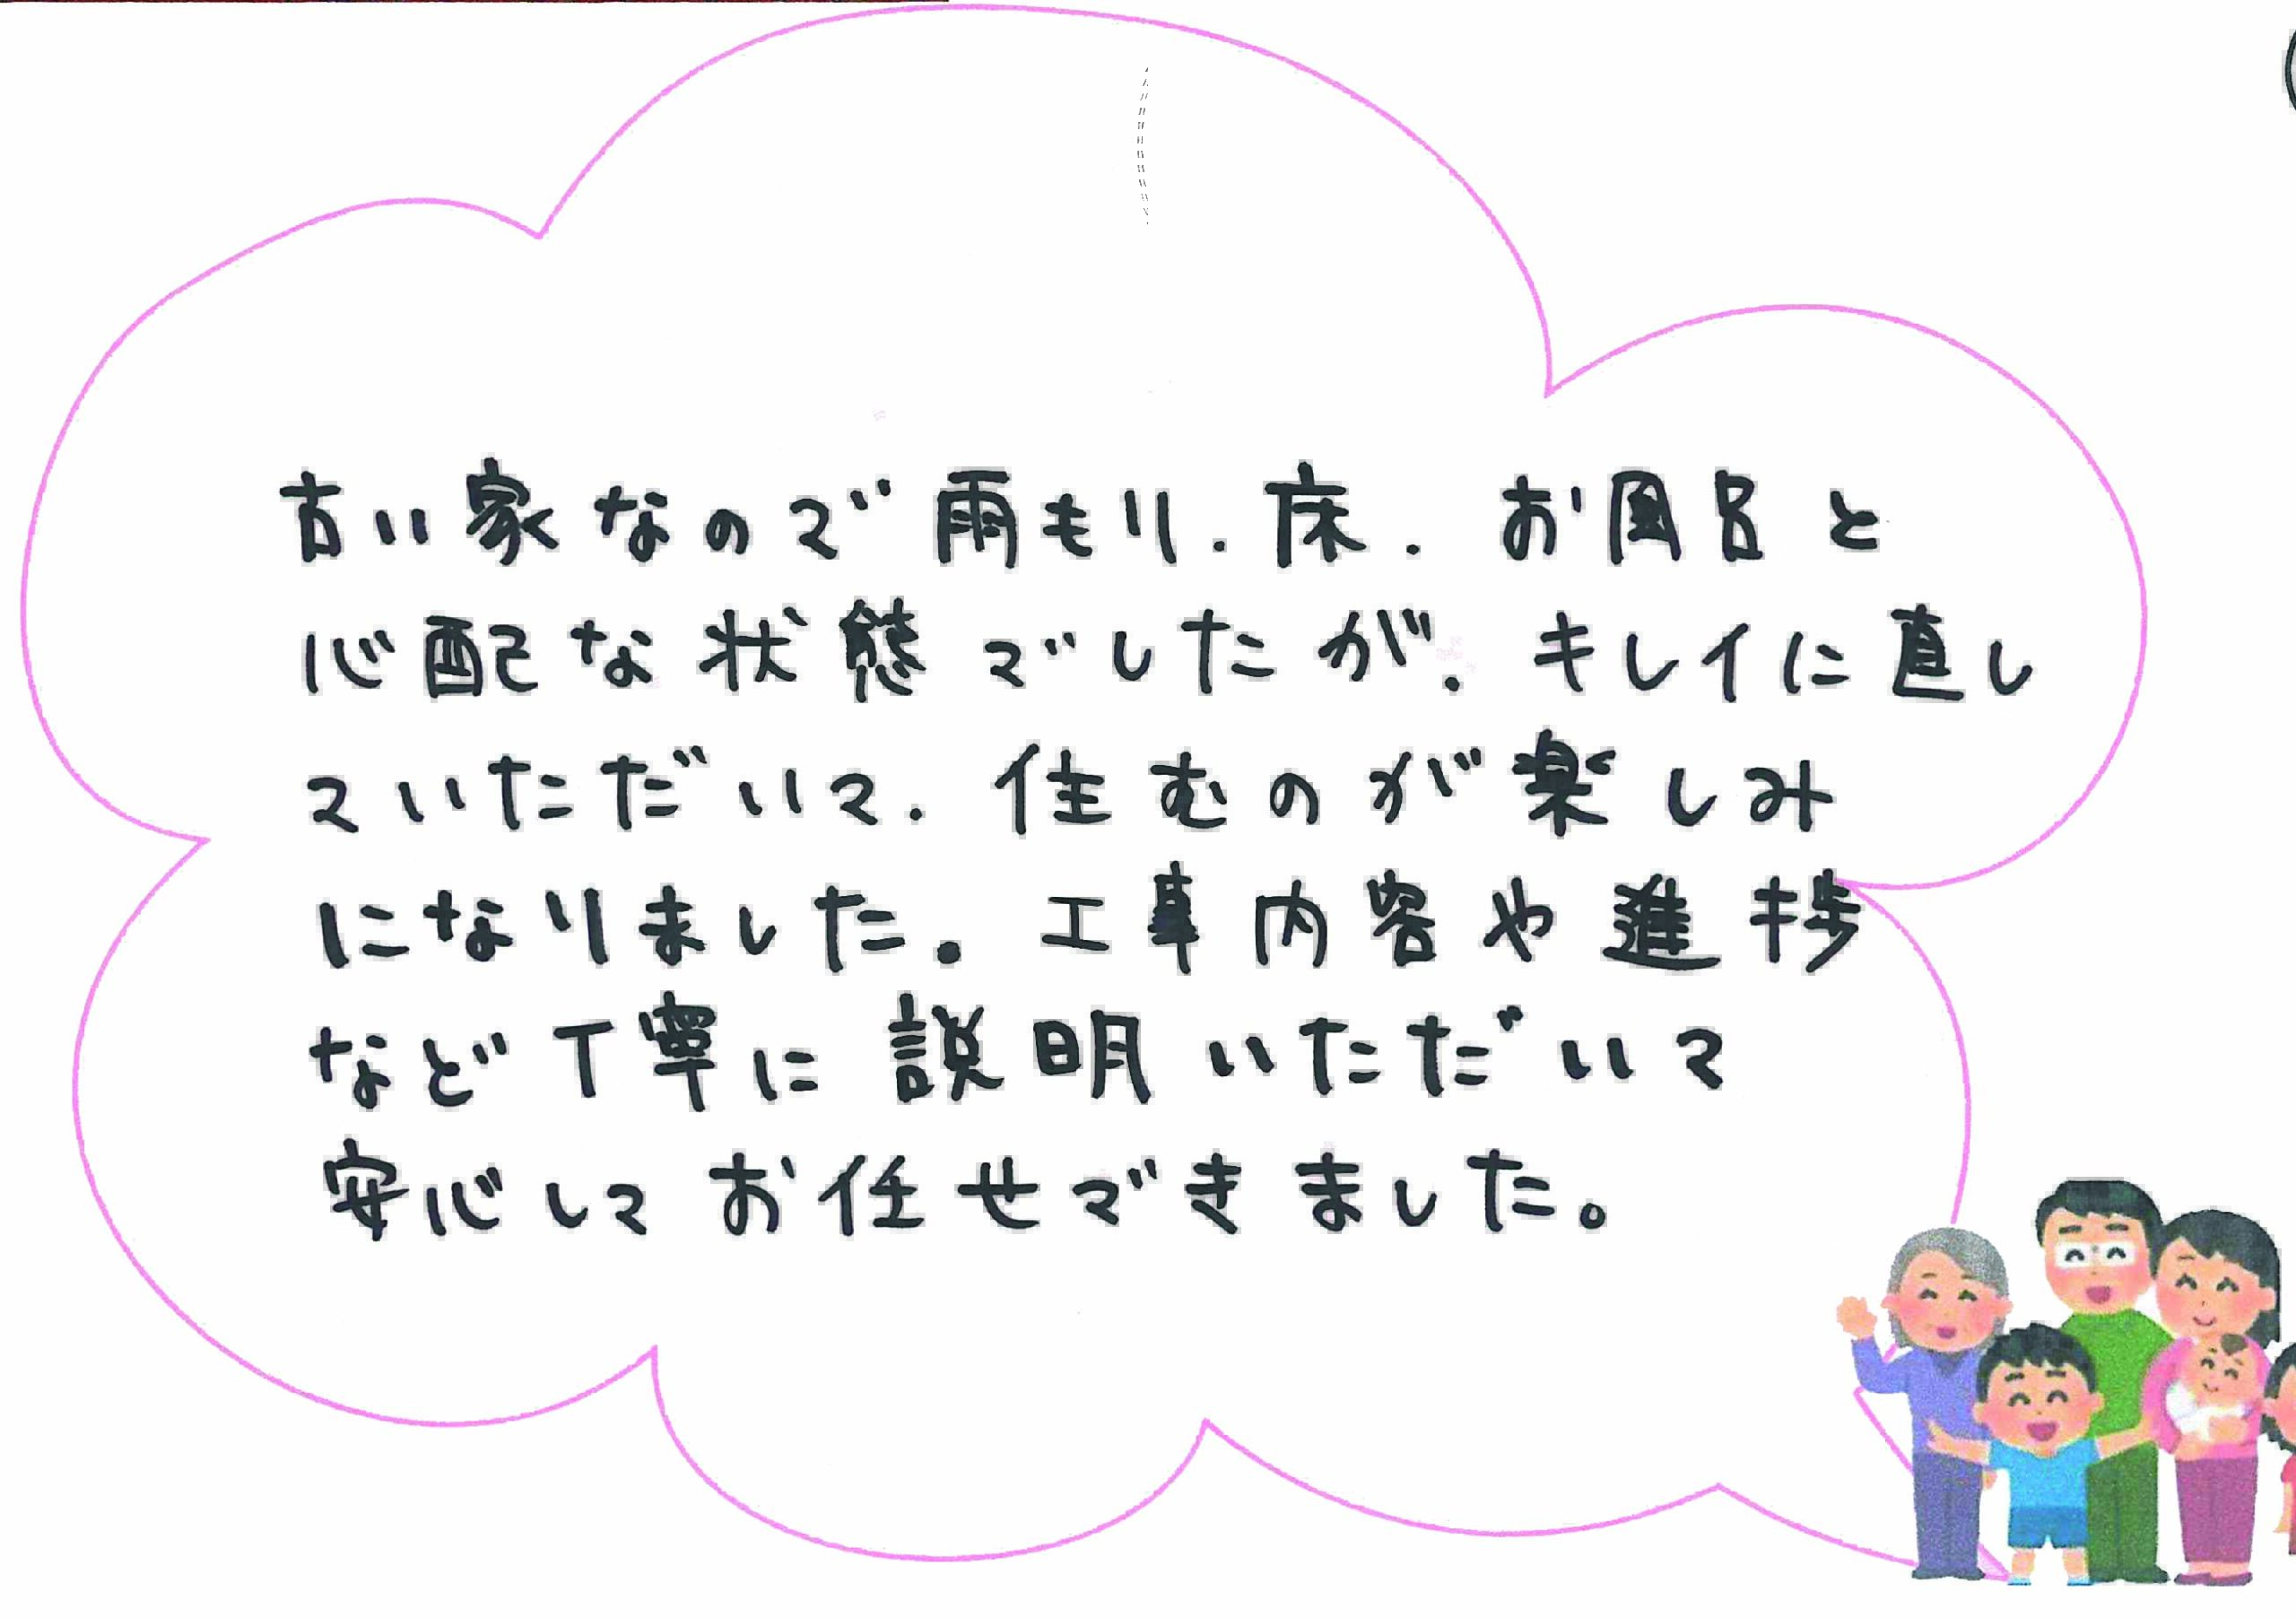 古い家なので雨もり、床、お風呂と
心配な状態でしたが、キレイに直し
ていただいて、住むのが楽しみ
になりました。工事内容や進捗
など丁寧に説明いただいて
安心してお任せできました。